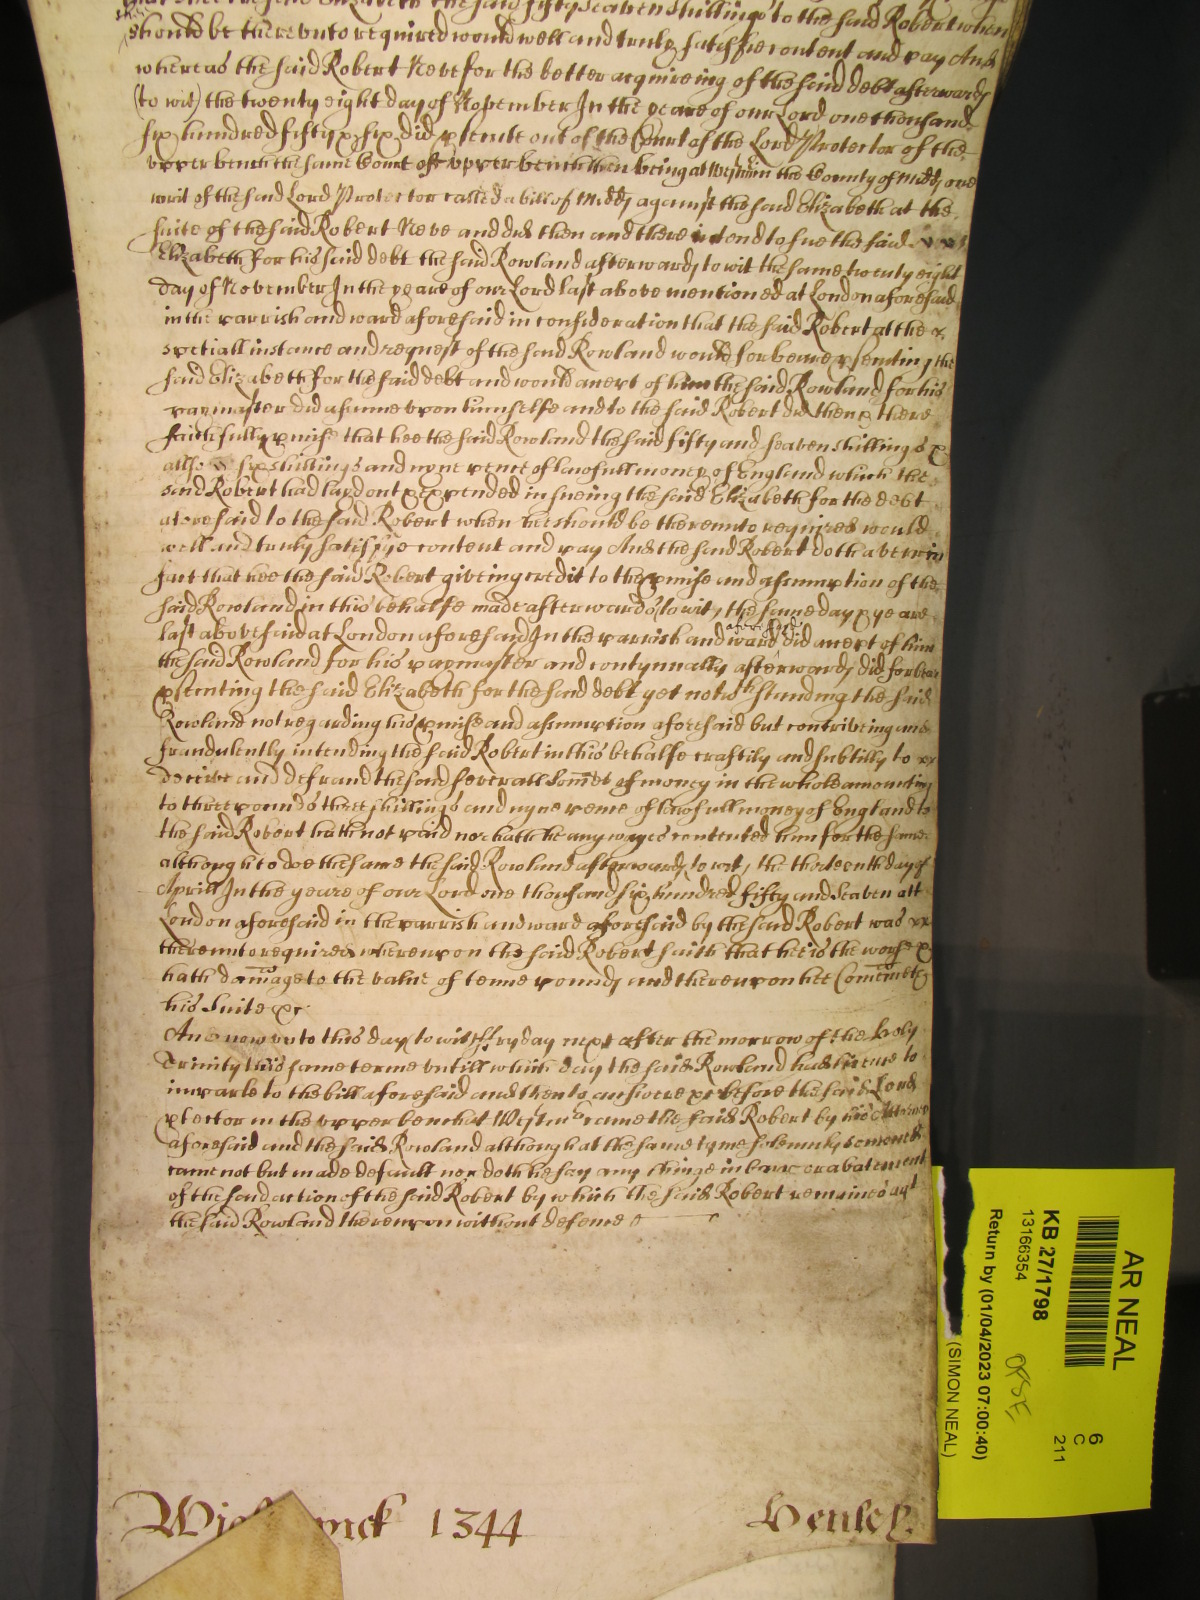 that shee the said Elizabeth the said fifty seaven shillings to the said Robert when
should be thereunto required would well and truly satisfie content and pay And
whereas the said Robert Neve for the better acquireing of the said debt afterwards
(to wit) the twenty eight day of November In the yeare of our Lord one thousand
six hundred fifty & six did psecute out of the Court of the Lord Protector of the
upper bench the same Court of upper bench then being at Westm in the County of Midd one
writ of the said Lord Protector called a bill of Midd against the said Elizabeth at the
suite of the said Robert Neve and did then and there intend to sue the said
Elizabeth for his said debt the said Rowland afterwards to wit the same twenty eight
day of November In the yeare of our Lord last above mentioned at London aforesaid
in the parrish and ward aforesaid in consideration that the said Robert at the
speciall instance and request of the said Rowland would forbeare psecuting the
said Elizabeth for the said debt and would accept of him the said Rowland for his
paymaster did assume upon himselfe and to the said Robert did then & there
faithfully pmise that hee the said Rowland the said fifty and seaven shillings &
allso six shillings and nyne pence of lawfull money of England which the
said Robert had laid out & expended in sueing the said Elizabeth for the debt
aforesaid to the said Robert when hee should be thereunto required would
well and truly satisfye content and pay And the said Robert doth averr in
fact that hee the said Robert giveing credit to the pmise and assumption of the
said Rowland in this behalfe made afterwards to wit, the same day & yeare
last abovesaid at London aforesaid In the parrish and ward aforesaid did accept of him
the said Rowland for his paymaster and contynually afterwards did forbeare
psecuting the said Elizabeth for the said debt yet notwthstanding the said
Rowland not regarding his pmise and assumption aforesaid but contriveing and
fraudulently intending the said Robert in this behalfe craftily and subtilly to
deceive and defraud the said severall somes of money in the whole amounting
to three pounds three shillings and nyne pence of lawfull money of England to
the said Robert hath not paid nor hath he any wayes contented him for the same
although to doe the same the said Rowland afterwards to wit, the thirteenth day of
Aprill In the yeare of our Lord one thousand six hundred fifty and seaven att
London aforesaid in the parrish and ward aforesaid by the said Robert was
thereunto required whereupon the said Robert saith that hee is the worse &
hath damage to the value of tenne pounds and thereupon hee Comenceth
his suite &c
And now unto this day to wit ffryday next after the morrow of the holy
Trinity this same terme untill which day the said Rowland had licence to
imparle to the bill aforesaid and then to answere &c before the said Lord
ptector in the upper bench at Westmr came the said Robert by his Attorney
aforesaid and the said Rowland although at the same tyme solemnly
came not but made default nor doth he say any thinge in barr or abatement
of the said action of the said Robert by which the said Robert remaines agt
the said Rowland thereupon without defence
1344 Henley.
AR NEAL
KB 27/1798
13166354
Return by (01/04/2023 07:00:40)
(SIMON NEAL)
6
C
211